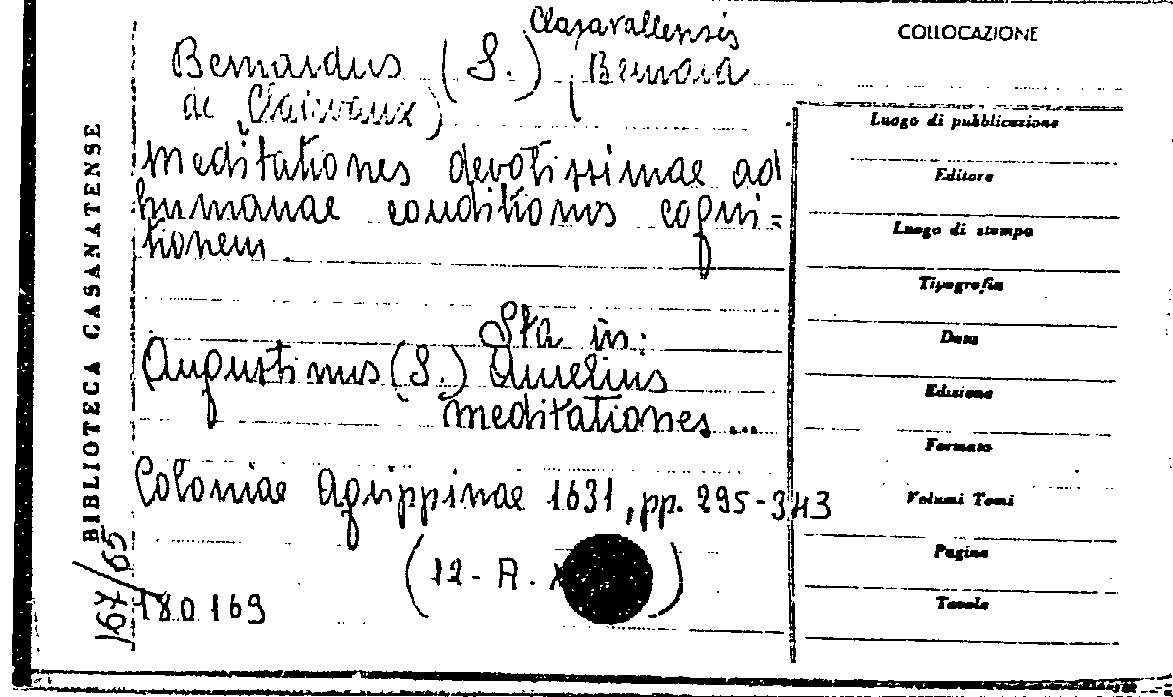 COLLOCAZIONE
Claravallensis
Bernardus (S.) (Bernard
de Clairvaux)
meditationes devotissimae ad
humanae conditionis cogni=
tionem.
Sta in:
Augustinus (S.) Aurelius
meditationes...
Coloniae Agrippinae 1631, pp. 295-343
(12- A. )
180169
167/65
BIBLIOTECA CASANATENSE
Luogo di pubblicazione
Editore
Luogo di stampa
Tipografia
Data
Edizione
Formato
Volumi Tomi
Pagine
Tavole